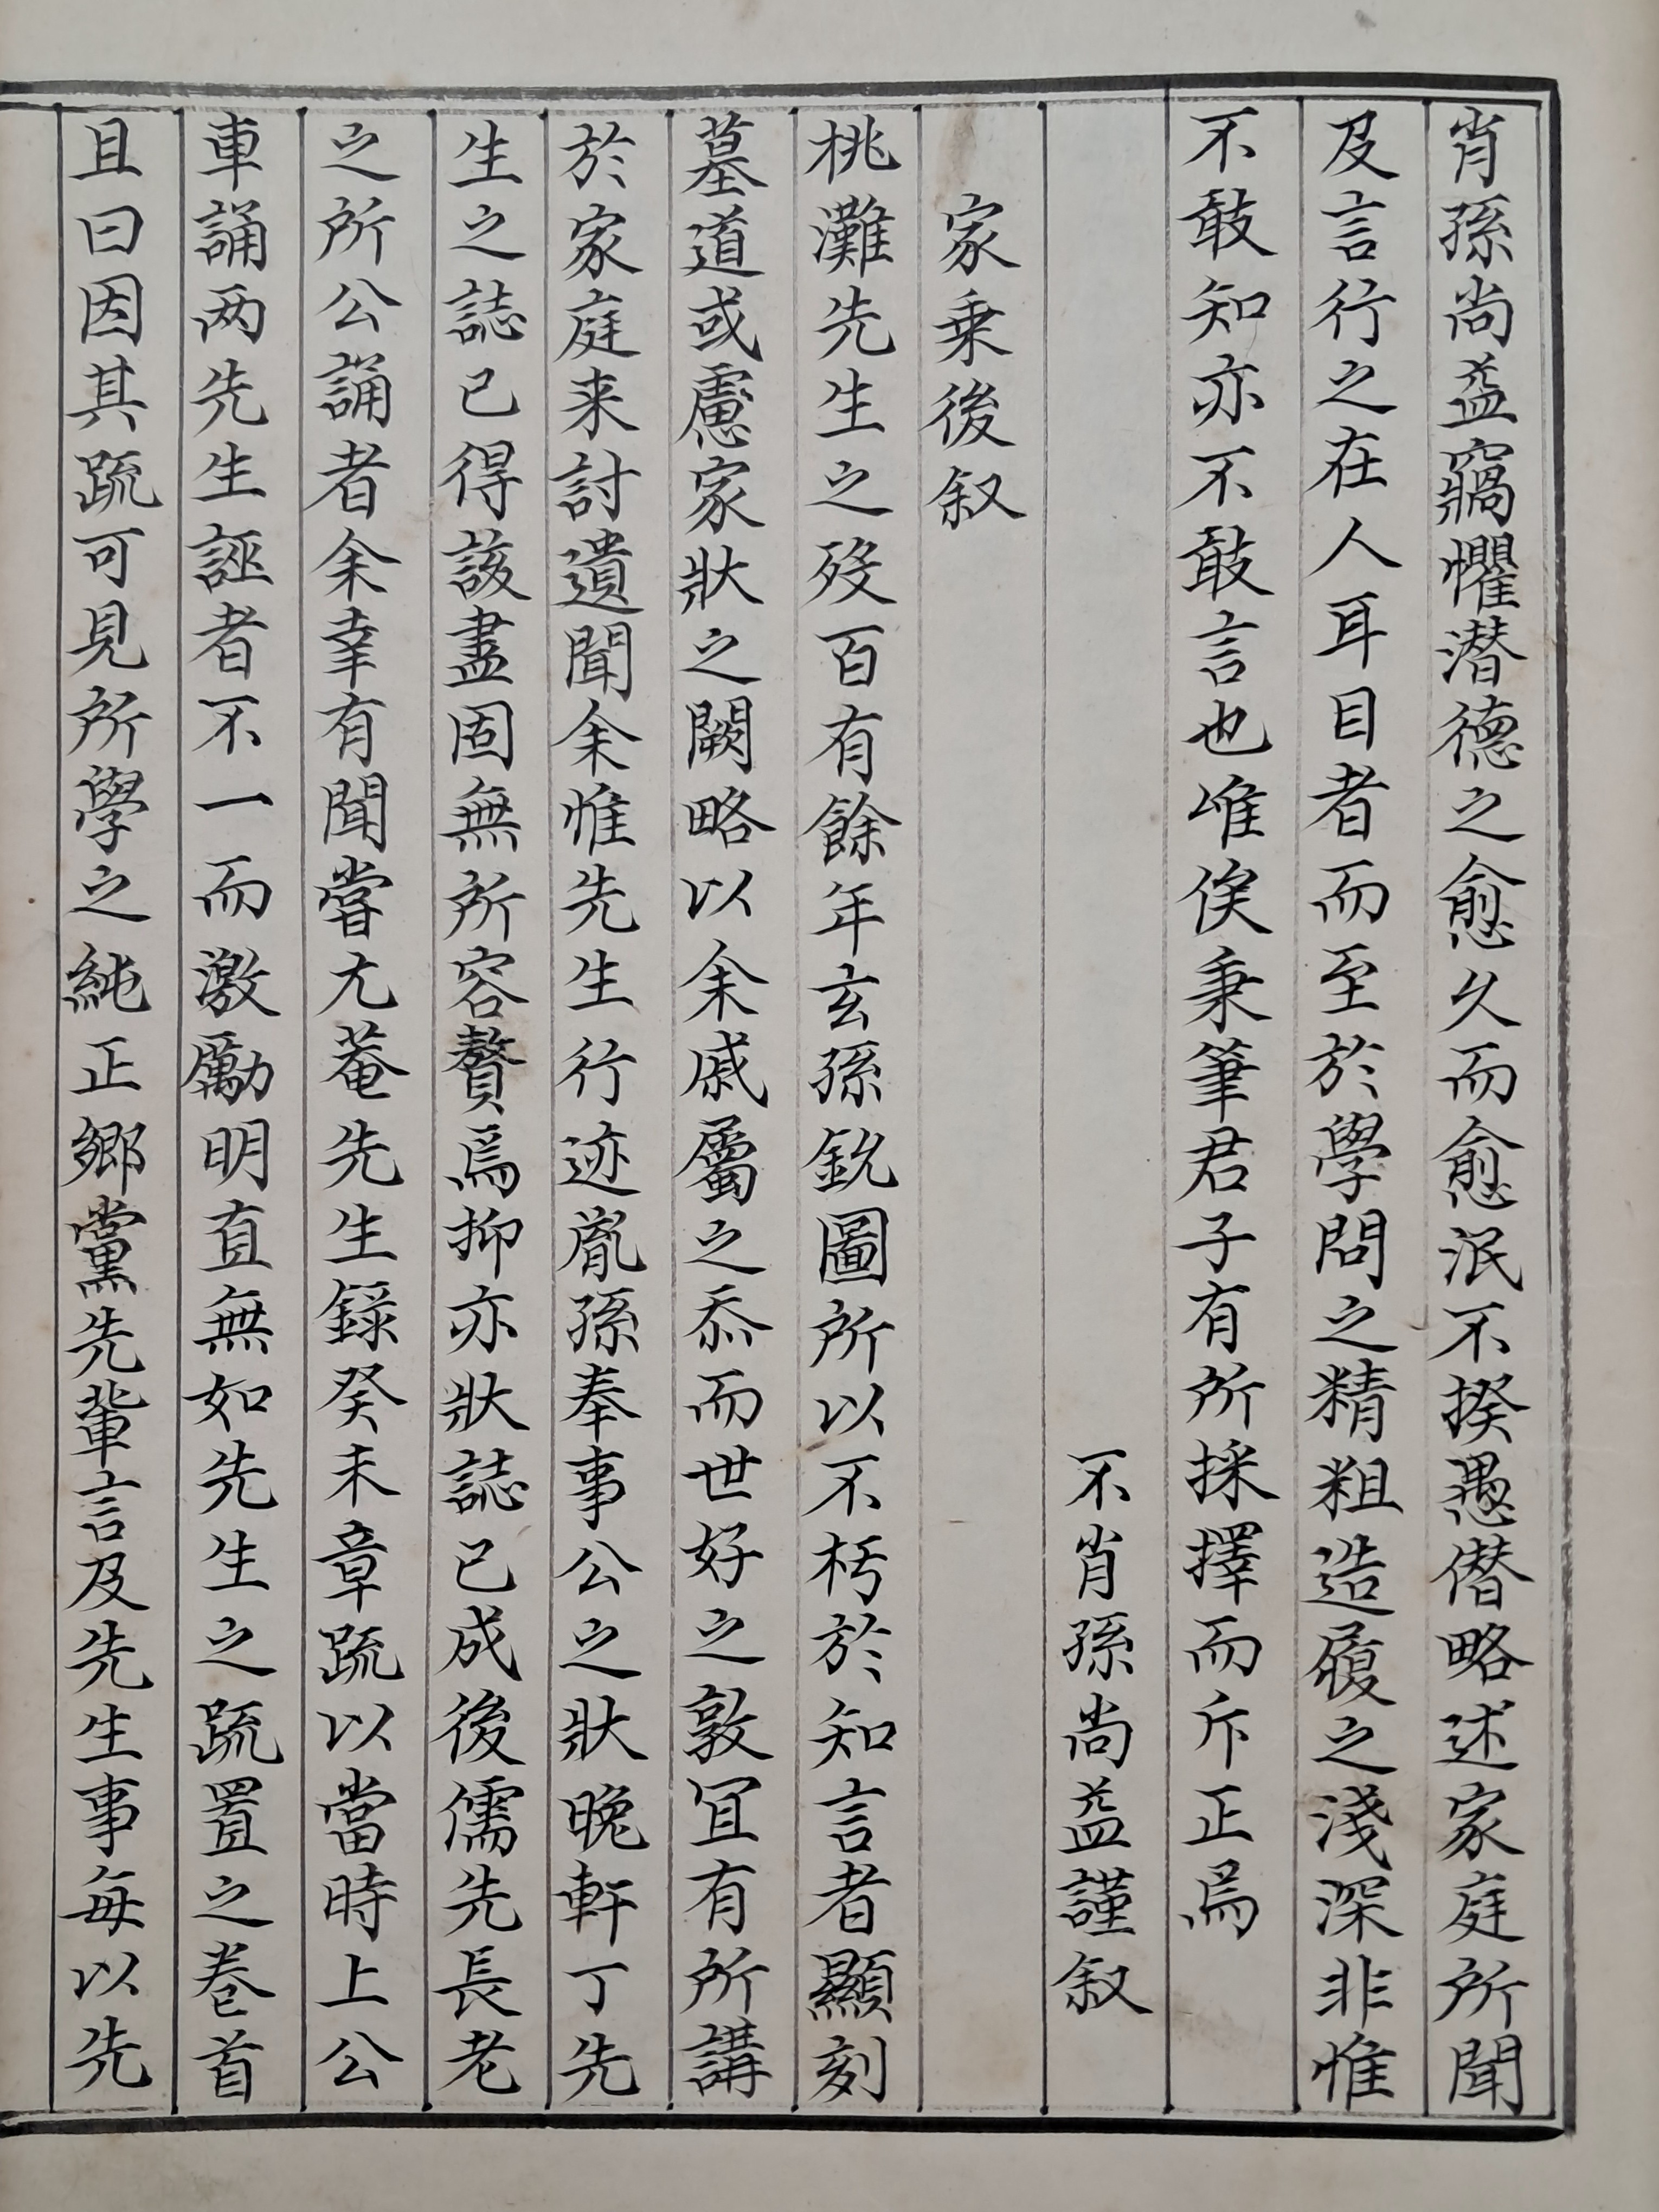 肖孫尚益竊懼潜德之愈久而愈泯不揆愚僭略述家庭所聞
及言行之在人耳目者而至於學問之精粗造履之淺深非惟
不敢知亦不敢言也唯俟秉筆君子有所採擇而斥正焉
不肖孫尚益謹叙
家乗後叙
桃灘先生之歿百有餘年玄孫銳圖所以不朽於知言者顯刻
墓道或慮家狀之闕略以余戚屬之忝而世好之敦冝有所講
於家庭来討遺聞余惟先生行迹胤孫奉事公之狀晚軒丁先
生之誌已得該盡固無所容贅焉抑亦狀誌已成後儒先長老
之所公誦者余幸有聞嘗尤菴先生錄癸未章疏以當時上公
車誦两先生誣者不一而激勵明直無如先生之疏置之卷首
且曰因其疏可見所學之純正鄉黨先輩言及先生事每以先